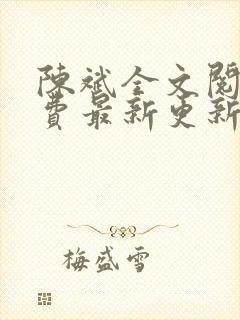 陳斌全文閱
費最新更新
梅盛雪